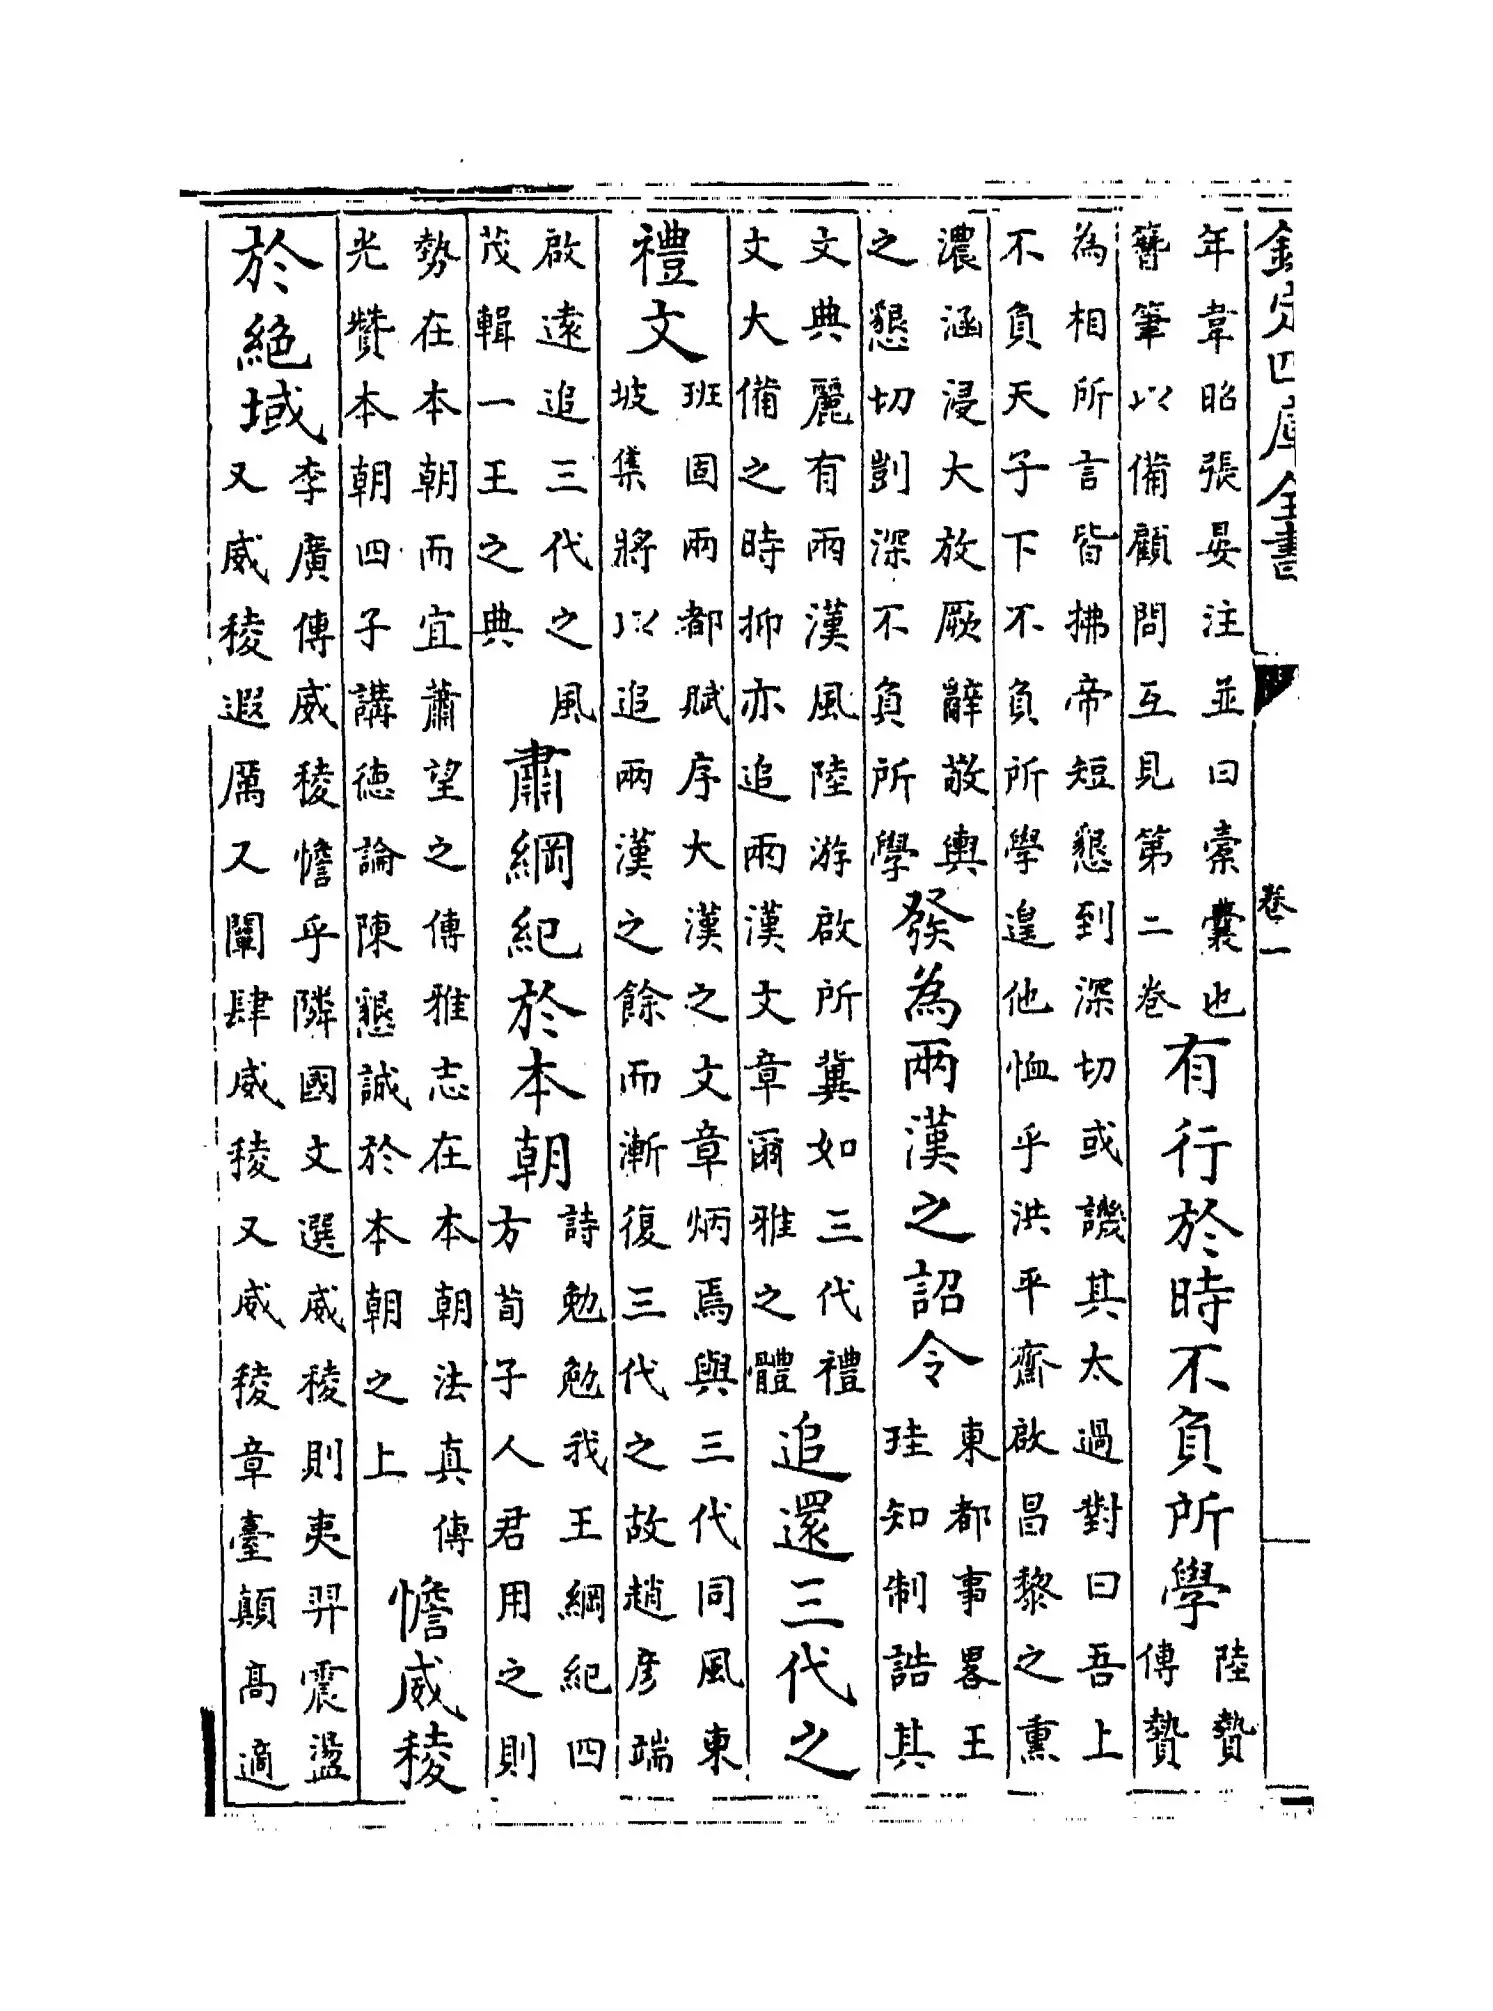 欽定四庫全書
卷一
年韋昭張晏注並曰橐囊也
簪筆以備顧問互見第二卷
有行於時不負所學
陸贄
傳贄
為相所言皆拂帝短懇到深切或譏其太過對曰吾上
不負天子下不負所學遑他恤乎洪平齋啟昌黎之熏
濃涵浸大放厥辭敬輿
之懇切剴深不負所學
發為兩漢之詔令
東都事畧王
珪知制誥其
文典麗有兩漢風陸游啟所冀如三代禮
文大備之時抑亦追兩漢文章爾雅之體
追還三代之
禮文
班固兩都賦序大漢之文章炳焉與三代同風東
坡集將以追兩漢之餘而漸復三代之故趙彥端
啟遠追三代之風
茂輯一王之典
肅綱紀於本朝
詩勉勉我王綱紀四
方荀子人君用之則
勢在本朝而宜蕭望之傳雅志在本朝法真傳
光贊本朝四子講德論陳懇誠於本朝之上
憺威稜
於絕域
李廣傳威稜憺乎隣國文選威稜則夷羿震盪
又威稜遐厲又闡肆威稜又威稜章臺顛高適